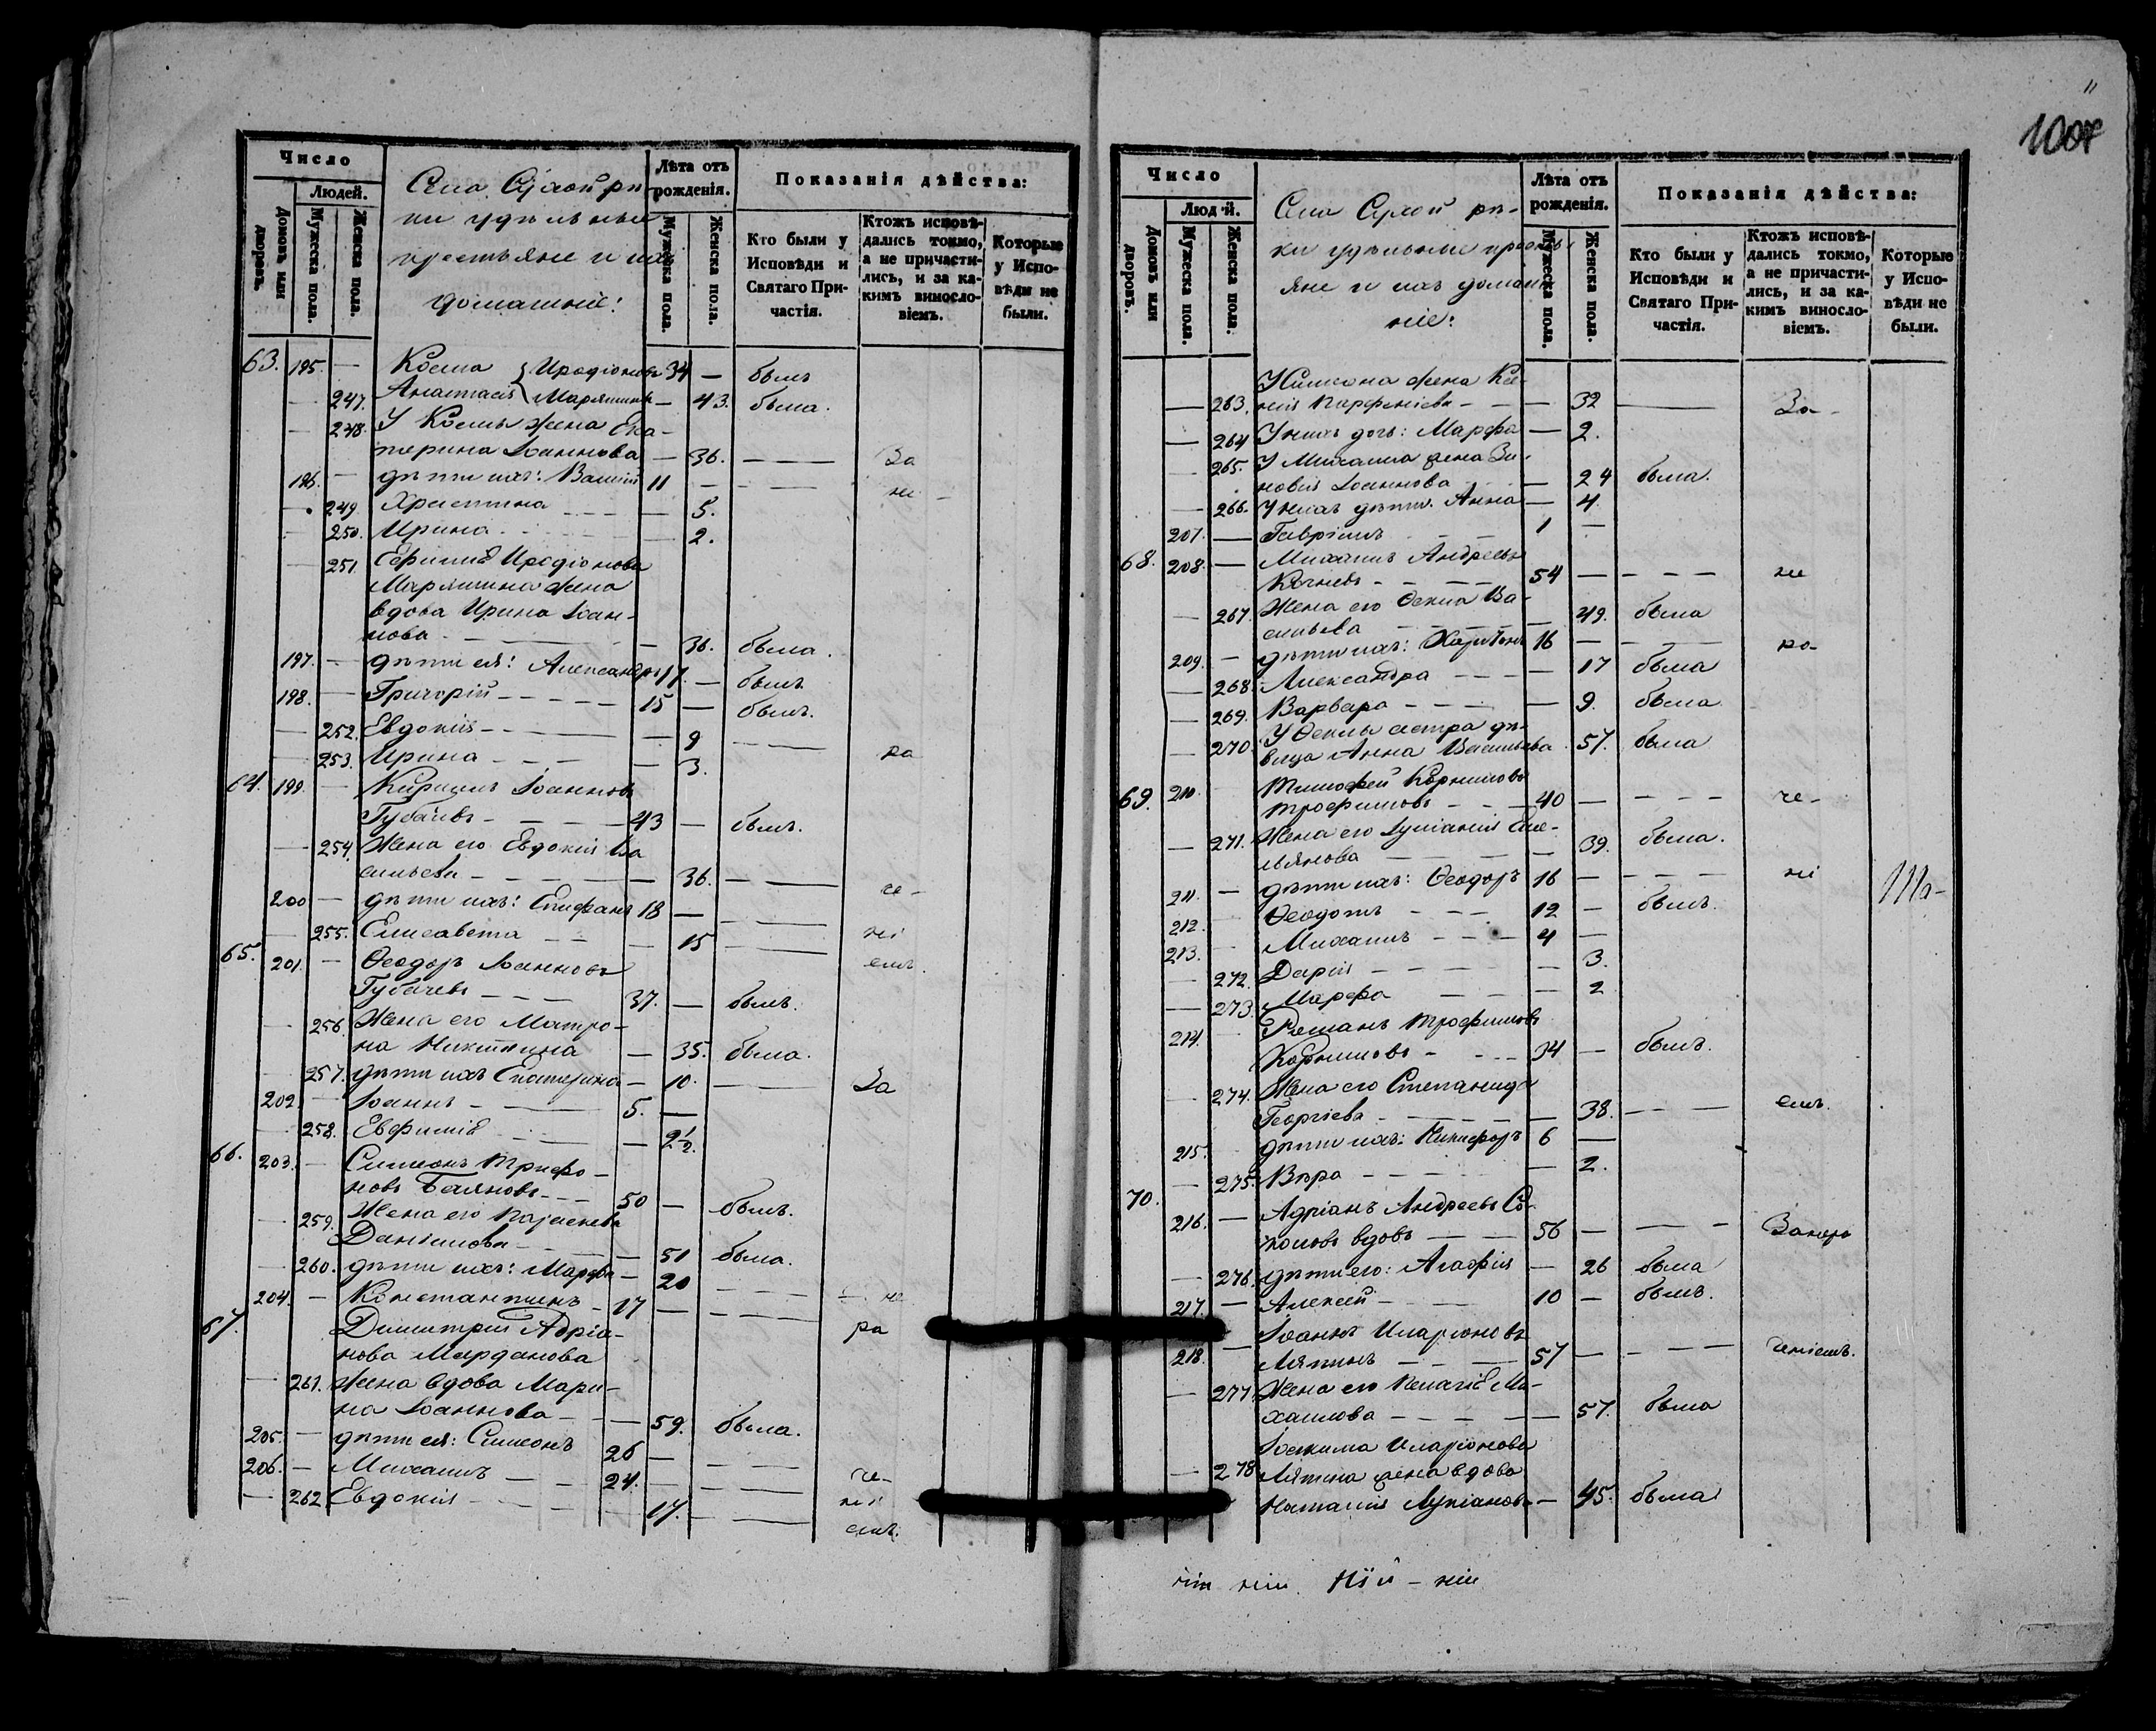 Число
Людей.
Домовъ или дворовъ.
Мужеска пола.
Женска пола.
Села Сухой рѣ-
ки удѣльные
крестьяне и ихъ
домашніе:
Лѣта отъ рожденія.
Мужеска пола.
Женска пола.
Показанія дѣйства:
Кто были у Исповѣди и Святаго Причастія.
Ктожъ исповѣдались токмо, а не причастились, и за какимъ винословіемъ.
Которые у Исповѣди не были.
63. 195. — Косма Иродіоновъ 34 — былъ
— 247. Анастасія Маряшины — 43. была.
— 248. У Космы жена Ека-
терина Іоаннова — 36. — За
196. — дѣти ихъ: Василій 11 — — не
— 249 Христина — 5.
— 250. Ирина — 2.
— 251. Ефимія Иродіонова
Маряшина жена
вдова Ирина Іоан-
нова — 36. была.
197. — дѣти ея: Александръ 17. — былъ
198. — Григорій 15 — былъ.
— 252. Евдокія — 9 — ра
— 253. Ирина — 3.
64. 199. — Кириллъ Іоанновъ
Губачевъ 43 — былъ.
— 254. Жена его Евдокія Ва
сильева — 36. — че-
200 — дѣти ихъ: Епифанъ 18 —
— 255. Елисавета — 15 — ні
65. 201. — Ѳеодоръ Іоанновъ емъ.
Губачевъ 37. — былъ.
— 256. Жена его Матро-
на Никитина — 35. была.
— 257. дѣти ихъ Екатерина — 10. — За
202. — Іоаннъ 5. —
— 258. Евфимія — 2½.
66. 203. — Симеонъ Трифо-
новъ Баяновъ 50 — былъ.
— 259. Жена его Параскева
Даніилова — 51 была.
— 260. дѣти ихъ: Марфа — 20 — не
204. — Константинъ 17 — — ра
67. Димитрія Адріа-
нова Марданова
— 261. жена вдова Мари-
на Іоаннова — 59. была.
205. — дѣти ея: Симеонъ 26 —
206. — Михаилъ 24. — че-
— 262 Евдокія — 17. — ні
емъ.
1007
Число
Людей.
Домовъ или дворовъ.
Мужеска пола.
Женска пола.
Села Сухой рѣ-
ки удѣльные крестья
яне и ихъ домаш
ніе:
Лѣта отъ рожденія.
Мужеска пола.
Женска пола.
Показанія дѣйства:
Кто были у Исповѣди и Святаго Причастія.
Ктожъ исповѣдались токмо, а не причастились, и за какимъ винословіемъ.
Которые у Исповѣди не были.
У Симеона жена Ксе-
— 263. нія Парфеніева — 32 — За-
— 264 У нихъ дочь: Марфа — 2.
— 265. У Михаила жена Зи-
новія Іоаннова — 24 была.
— 266. У нихъ дѣти. Анна — 4.
207. — Гавріилъ 1 —
68. 208. — Михаилъ Андреевъ
Кочневъ 54 — — не
— 267. Жена его Ѳекла Ва-
сильева — 49. была
209. — дѣти ихъ: Харитонъ 16 — — ра-
— 268. Александра — 17 была
— 269. Варвара — 9. была
— 270. У Ѳеклы сестра дѣ-
вица Анна Васильева 57. была
69. 210. Тимофей Корниловъ
Трофимовъ 40 — — че-
— 271. Жена его Іуліанія Еме-
льянова — 39. была.
211. — дѣти ихъ: Ѳеодоръ 16 — — ні
212. Ѳеодотъ 12 — былъ.
213. Михаилъ 4 —
— 272. Дарія — 3.
— 273. Марфа — 2
214. Романъ Трофимовъ
Корниловъ 34 — былъ.
— 274. Жена его Степанида
Георгіева — 38. — емъ.
215. дѣти ихъ: Никифоръ 6 —
— 275. Вѣра — 2.
70. 216. — Адріанъ Андреевъ Со-
коловъ вдовъ 56 — — Занера
— 276. дѣти его: Агафія — 26 была
217. — Алексей 10 — былъ.
218. — Іоаннъ Иларіоновъ
Ляпинъ 57 — — ченіемъ.
— 277. Жена его Пелагія Ми-
хаилова — 57. была
Іоакима Иларіонова
— 278 Ляпина жена вдова
Наталія Лукіанова — 45. была
нія ніи. Ній - ніи